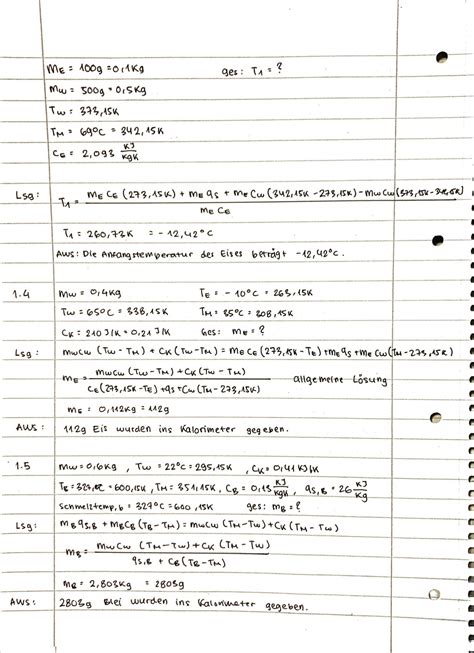 mE = 100g = 0,1kg ges: T1 = ?
mW = 500g = 0,5kg
TW = 373,15K
TM = 69°C = 342,15K
CE = 2,093 kJ/kgK
Lsg: T1 = (mE CE (273,15K) + mE qS + mE CW (342,15K - 273,15K) - mW CW (373,15K - 342,15K)) / (mE CE)
T1 = 260,73K = -12,42°C
AWS: Die Anfangstemperatur des Eises beträgt -12,42°C.
1.4 mW = 0,4kg TE = -10°C = 263,15K
TW = 65°C = 338,15K TM = 35°C = 308,15K
CK = 210 J/K = 0,21 J/K Ges: mE = ?
Lsg: mW CW (TW - TM) + CK (TW - TM) = mE CE (273,15K - TE) + mE qS + mE CW (TM - 273,15K)
mE = (mW CW (TW - TM) + CK (TW - TM)) / (CE (273,15K - TE) + qS + CW (TM - 273,15K)) allgemeine Lösung
mE = 0,112kg = 112g
AWS: 112g Eis wurden ins Kalorimeter gegeben.
1.5 mW = 0,6kg, TW = 22°C = 295,15K, CK = 0,41 kJ/K
= 600,15K, TM = 351,15K, CB = 0,13 kJ/kgK, qS,B = 26 kJ/kg
Schmelztemp. B = 327°C = 600,15K ges: mB = ?
Lsg: mB qS,B + mB CB (TB - TM) = mW CW (TM - TW) + CK (TM - TW)
mB = (mW CW (TM - TW) + CK (TM - TW)) / (qS,B + CB (TB - TM))
mB = 2,803kg = 2803g
AWS: 2803g Blei wurden ins Kalorimeter gegeben.